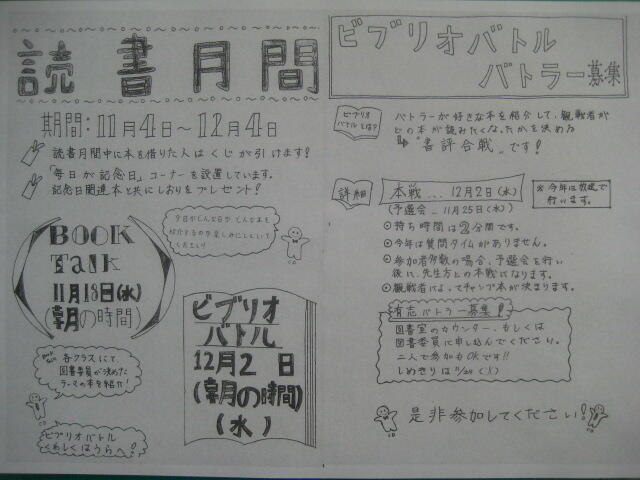 読書月間
期間:11月4日~12月4日
読書月間中に本を借りた人はくじが引けます!
「毎日が記念日」コーナーを設置しています。
記念日関連本と共にしおりをプレゼント!
今日がどんな日か、どんな本を
紹介するのか楽しみにしといて
ください
BOOK
Talk
11月18日(水)
(朝の時間)
Book Talk
各クラスにて、
図書委員が決めた
テーマの本を紹介!
ビブリオバトル
くわしくはうらへ!
ビブリオ
バトル
12月2日
(朝の時間)
(水)
ビブリオバトル
バトラー募集
ビブリオ
バトルとは?
バトラーが好きな本を紹介して、観戦者が
どの本が読みたくなったかを決める
"書評合戦"です!
詳細
本戦…12月2日(水)
(予選会…11月25日(水))
※今年は放送で
行います。
持ち時間は2分間です。
今年は質問タイムがありません。
参加者多数の場合、予選会を行い
後に、先生方との本戦になります。
観戦者によってチャンプ本が決まります。
有志バトラー募集!
図書室のカウンター、もしくは
図書委員に申し込んでください。
二人で参加もOKです!!
しめきりは11/24
是非参加してください!